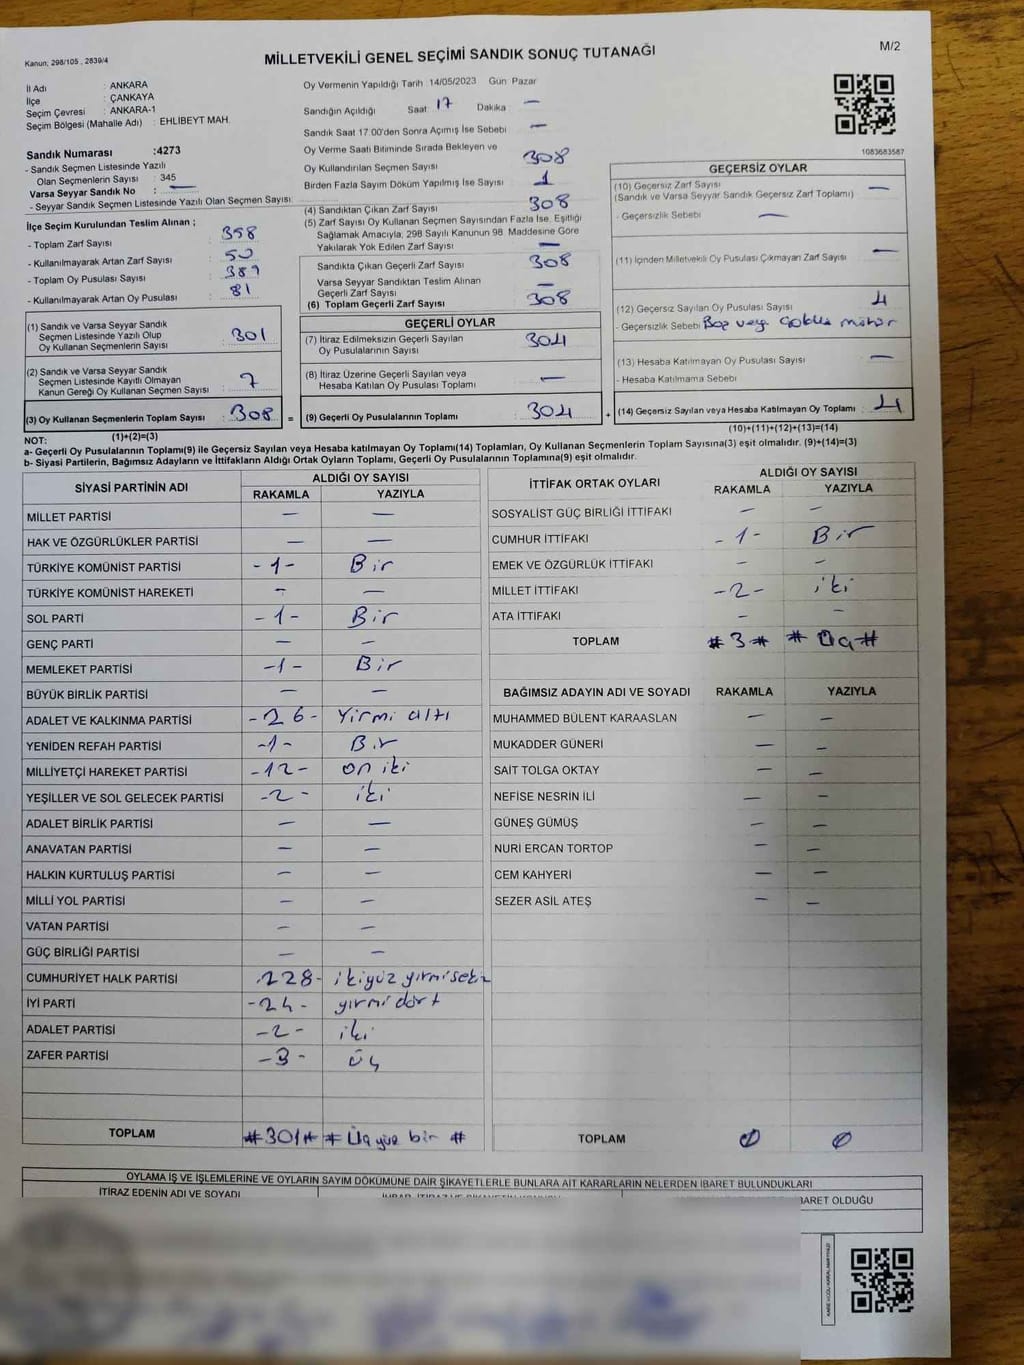 Kanun; 298/105 , 2839/4
MİLLETVEKİLİ GENEL SEÇİMİ SANDIK SONUÇ TUTANAĞI
M/2
İl Adı : ANKARA
İlçe : ÇANKAYA
Seçim Çevresi : ANKARA-1
Seçim Bölgesi (Mahalle Adı) : EHLİBEYT MAH.
Sandık Numarası :4273
- Sandık Seçmen Listesinde Yazılı
Olan Seçmenlerin Sayısı : 345
Varsa Seyyar Sandık No : —
- Seyyar Sandık Seçmen Listesinde Yazılı Olan Seçmen Sayısı:
İlçe Seçim Kurulundan Teslim Alınan ;
- Toplam Zarf Sayısı : 358
- Kullanılmayarak Artan Zarf Sayısı : 50
- Toplam Oy Pusulası Sayısı : 389
- Kullanılmayarak Artan Oy Pusulası : 81
(1) Sandık ve Varsa Seyyar Sandık
Seçmen Listesinde Yazılı Olup
Oy Kullanan Seçmenlerin Sayısı : 301
(2) Sandık ve Varsa Seyyar Sandık
Seçmen Listesinde Kayıtlı Olmayan
Kanun Gereği Oy Kullanan Seçmen Sayısı : 7
(3) Oy Kullanan Seçmenlerin Toplam Sayısı : 308 =
(1)+(2)=(3)
Oy Vermenin Yapıldığı Tarih 14/05/2023 Gün Pazar
Sandığın Açıldığı Saat: 17 Dakika : —
Sandık Saat 17.00'den Sonra Açımış İse Sebebi : —
Oy Verme Saati Bitiminde Sırada Bekleyen ve
Oy Kullandırılan Seçmen Sayısı : 308
Birden Fazla Sayım Döküm Yapılmış İse Sayısı : 1
(4) Sandıktan Çıkan Zarf Sayısı : 308
(5) Zarf Sayısı Oy Kullanan Seçmen Sayısından Fazla İse, Eşitliği
Sağlamak Amacıyla; 298 Sayılı Kanunun 98. Maddesine Göre
Yakılarak Yok Edilen Zarf Sayısı : —
Sandıkta Çıkan Geçerli Zarf Sayısı : 308
Varsa Seyyar Sandıktan Teslim Alınan
Geçerli Zarf Sayısı : —
(6) Toplam Geçerli Zarf Sayısı : 308
GEÇERLİ OYLAR
(7) İtiraz Edilmeksizin Geçerli Sayılan
Oy Pusulalarının Sayısı : 304
(8) İtiraz Üzerine Geçerli Sayılan veya
Hesaba Katılan Oy Pusulası Toplamı : —
(9) Geçerli Oy Pusulalarının Toplamı : 304 +
1083683587
GEÇERSİZ OYLAR
(10) Geçersiz Zarf Sayısı : —
(Sandık ve Varsa Seyyar Sandık Geçersiz Zarf Toplamı)
- Geçersizlik Sebebi : —
(11) İçinden Milletvekili Oy Pusulası Çıkmayan Zarf Sayısı : —
(12) Geçersiz Sayılan Oy Pusulası Sayısı : 4
- Geçersizlik Sebebi : Boş veya Çoklu mühür
(13) Hesaba Katılmayan Oy Pusulası Sayısı : —
- Hesaba Katılmama Sebebi
(14) Geçersiz Sayılan veya Hesaba Katılmayan Oy Toplamı : 4
(10)+(11)+(12)+(13)=(14)
NOT:
a- Geçerli Oy Pusulasının Toplamı(9) ile Geçersiz Sayılan veya Hesaba katılmayan Oy Toplamı(14) Toplamları, Oy Kullanan Seçmenlerin Toplam Sayısına(3) eşit olmalıdır. (9)+(14)=(3)
b- Siyasi Partilerin, Bağımsız Adayların ve İttifakların Aldığı Ortak Oyların Toplamı, Geçerli Oy Pusulalarının Toplamına(9) eşit olmalıdır.
SİYASİ PARTİNİN ADI ALDIĞI OY SAYISI
RAKAMLA YAZIYLA
MİLLET PARTİSİ — —
HAK VE ÖZGÜRLÜKLER PARTİSİ — —
TÜRKİYE KOMÜNİST PARTİSİ -1- Bir
TÜRKİYE KOMÜNİST HAREKETİ — —
SOL PARTİ -1- Bir
GENÇ PARTİ — —
MEMLEKET PARTİSİ -1- Bir
BÜYÜK BİRLİK PARTİSİ — —
ADALET VE KALKINMA PARTİSİ -26- Yirmi altı
YENİDEN REFAH PARTİSİ -1- Bir
MİLLİYETÇİ HAREKET PARTİSİ -12- on iki
YEŞİLLER VE SOL GELECEK PARTİSİ -2- iki
ADALET BİRLİK PARTİSİ — —
ANAVATAN PARTİSİ — —
HALKIN KURTULUŞ PARTİSİ — —
MİLLİ YOL PARTİSİ — —
VATAN PARTİSİ — —
GÜÇ BİRLİĞİ PARTİSİ — —
CUMHURİYET HALK PARTİSİ -228- ikiyüz yirmisekiz
İYİ PARTİ -24- yirmi dört
ADALET PARTİSİ -2- iki
ZAFER PARTİSİ -3- üç
TOPLAM #301# # Üçyüz bir #
İTTİFAK ORTAK OYLARI ALDIĞI OY SAYISI
RAKAMLA YAZIYLA
SOSYALİST GÜÇ BİRLİĞİ İTTİFAKI — —
CUMHUR İTTİFAKI -1- Bir
EMEK VE ÖZGÜRLÜK İTTİFAKI — —
MİLLET İTTİFAKI -2- iki
ATA İTTİFAKI — —
TOPLAM #3# # Üç #
BAĞIMSIZ ADAYIN ADI VE SOYADI RAKAMLA YAZIYLA
MUHAMMED BÜLENT KARAASLAN — —
MUKADDER GÜNERİ — —
SAİT TOLGA OKTAY — —
NEFİSE NESRİN İLİ — —
GÜNEŞ GÜMÜŞ — —
NURİ ERCAN TORTOP — —
CEM KAHYERİ — —
SEZER ASİL ATEŞ — —
TOPLAM 0 0
OYLAMA İŞ VE İŞLEMLERİNE VE OYLARIN SAYIM DÖKÜMÜNE DAİR ŞİKAYETLERLE BUNLARA AİT KARARLARIN NELERDEN İBARET BULUNDUKLARI
İTİRAZ EDENİN ADI VE SOYADI
İBARET OLDUĞU